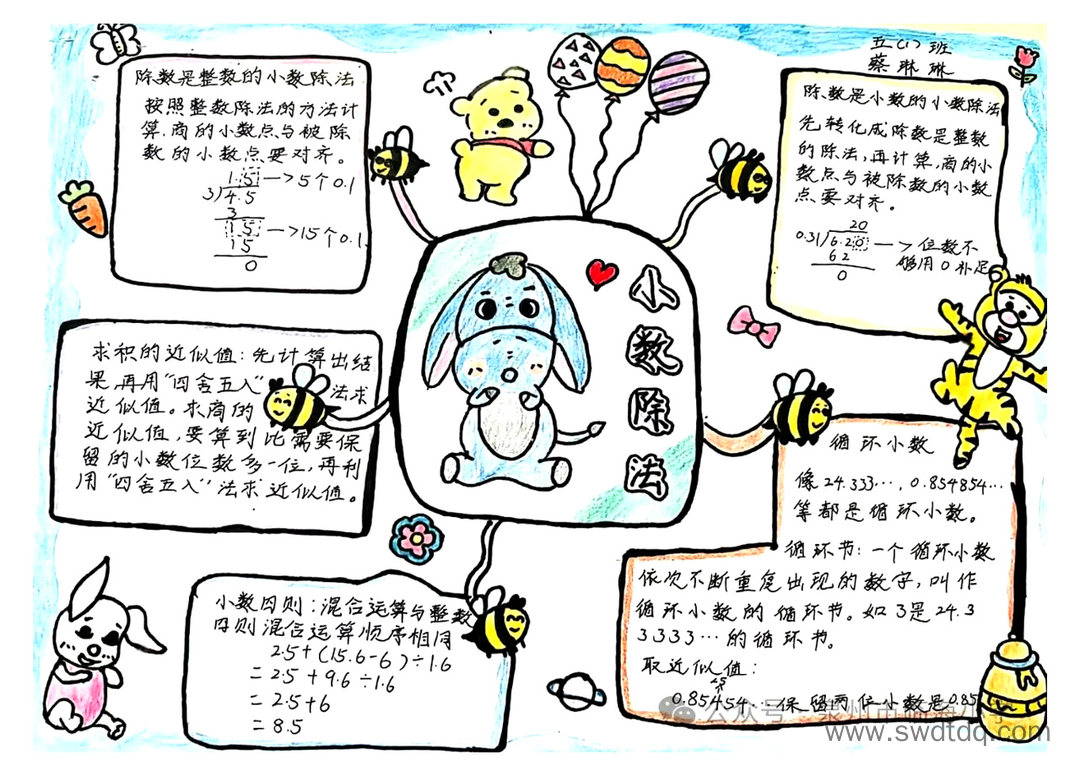 五(1)班
蔡琳琳
除数是整数的小数除法
按照整数除法的方法计
算,商的小数点与被除
数的小数点要对齐。
1.5—>5个0.1
3)4.5
3
15—>15个0.1
15
0
除数是小数的小数除法
先转化成除数是整数
的除法,再计算,商的小
数点与被除数的小数
点要对齐。
20
0.31)6.20—>位数不
62 够用0补足
0
小数除法
求积的近似值:先计算出结
果,再用“四舍五入”法求
近似值。求商的
近似值,要算到比需要保
留的小数位数多一位,再利
用“四舍五入”法求近似值。
循环小数
像24.333…,0.854854…
等都是循环小数。
循环节:一个循环小数
依次不断重复出现的数字,叫作
循环小数的循环节。如3是24.33
3333…的循环节。
取近似值:
0.85454…保留两位小数是0.85
小数四则:混合运算与整数
四则混合运算顺序相同
2.5+(15.6-6)÷1.6
=2.5+9.6÷1.6
=2.5+6
=8.5
公众号
www.swdtdq.com